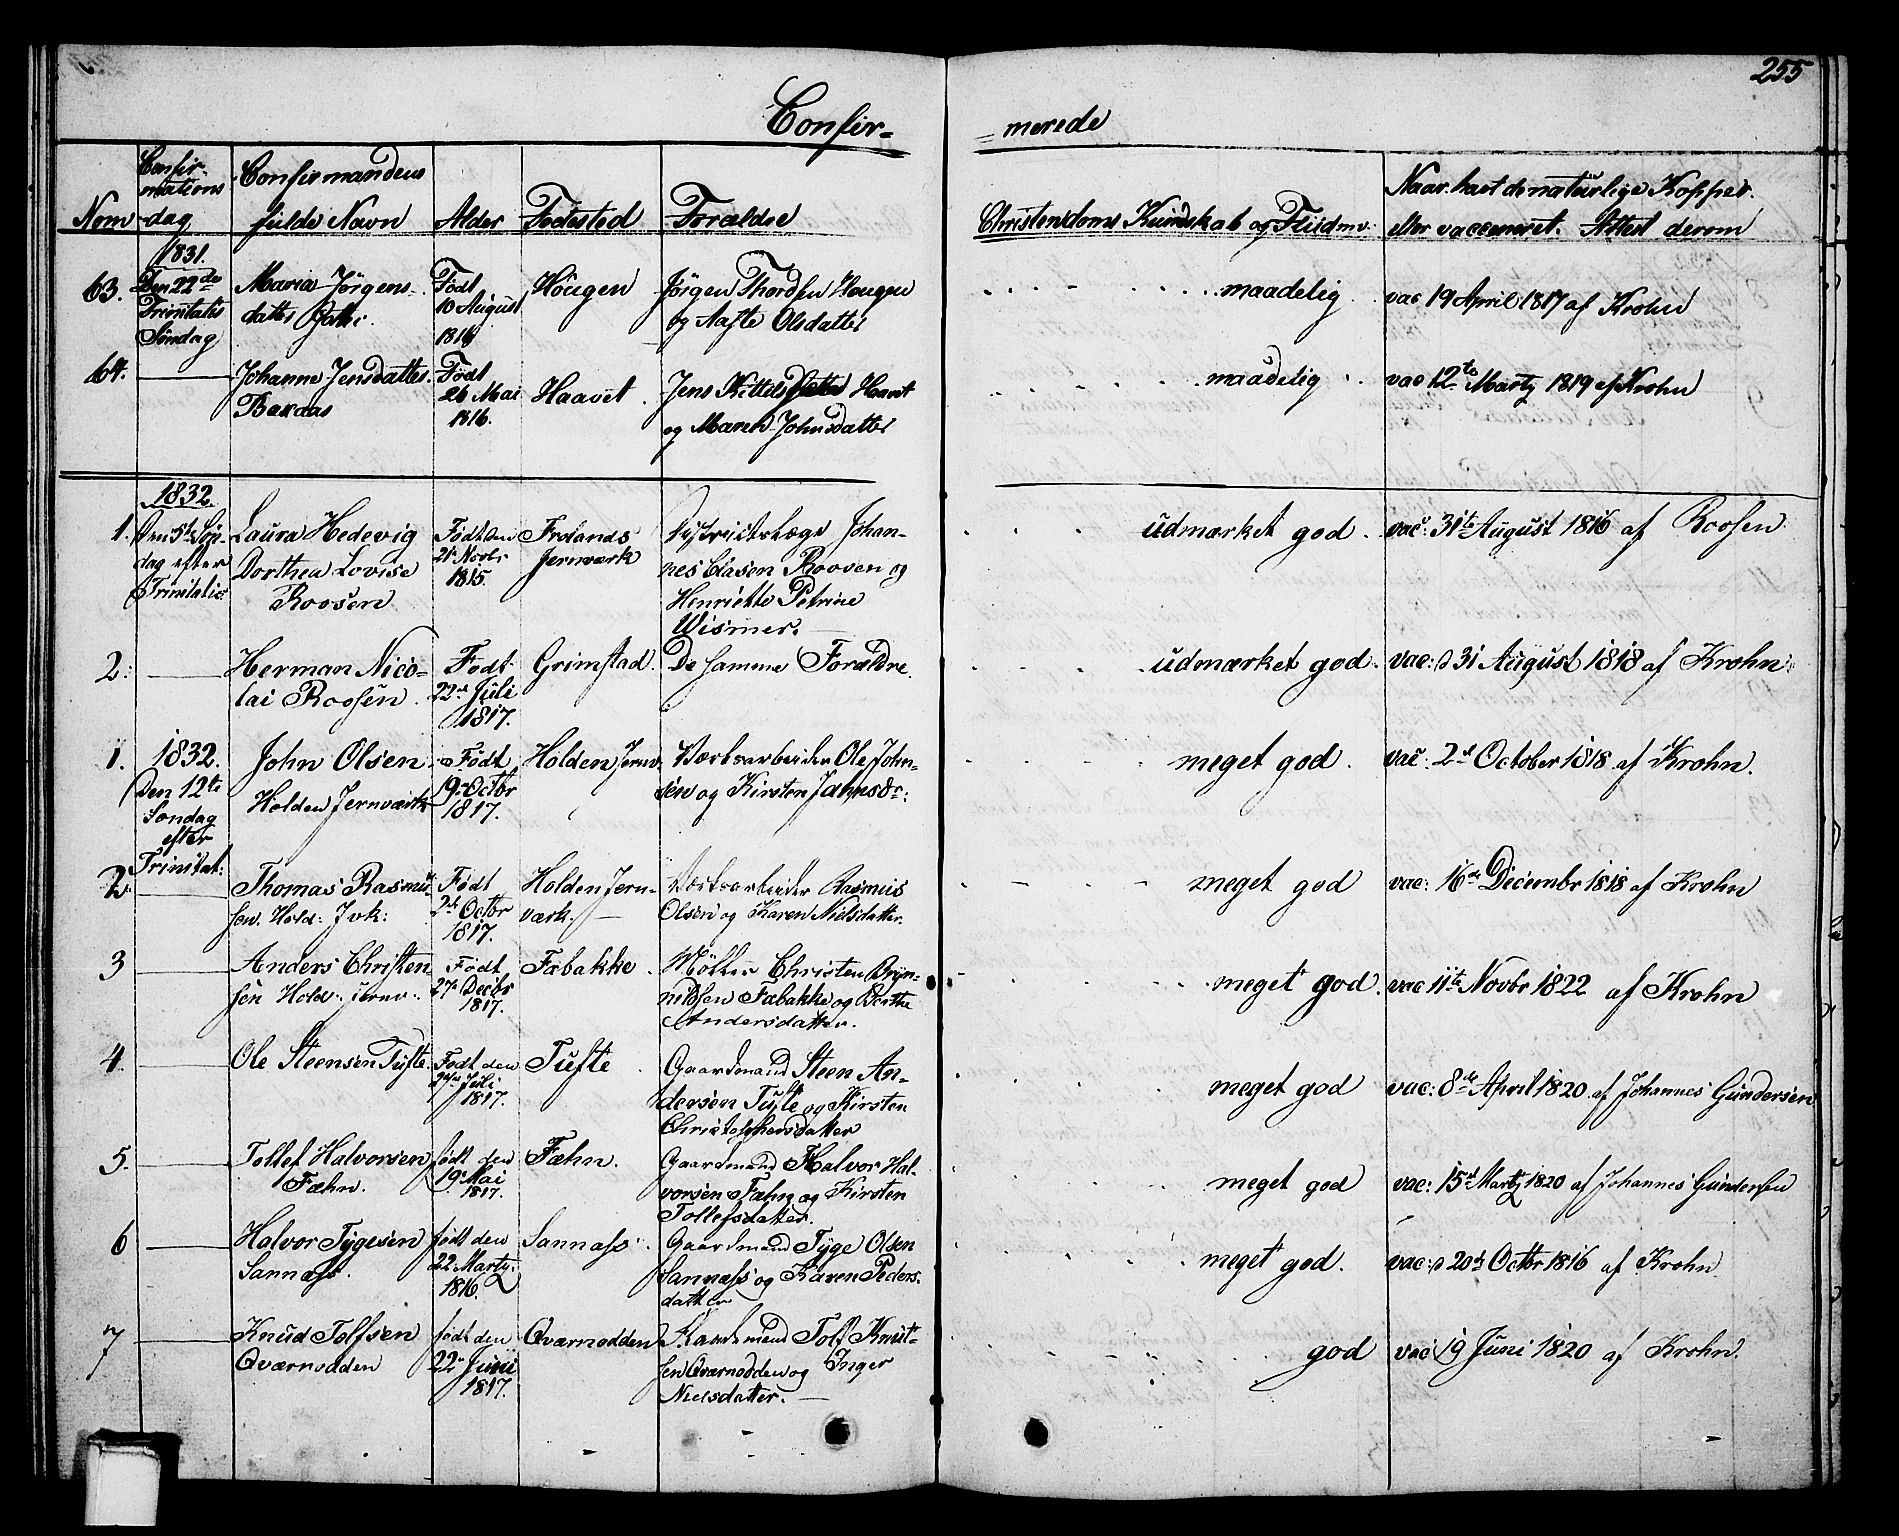 255
Confir=
=merede
Nom
Confir-
mations
dag
Confirmandens
fulde Navn
Alder
Fødested
Forældre
Christendoms Kundskab og Fliid
Naar havt de naturlige Kopper
eller vaccineret. Attest derom
1831.
63. Den 22de
Trinitatis
Søndag
Maria Jørgens-
datter
Født
10 August
Hougen
Jørgen Thordsen Hougen
og Aaste Olsdatter
maadelig
vac 19 April 1817 af Krohn
64.
Johanne Jensdatter
Født
26 Mai
1816.
Haavet
Jens Kittels Haavet
og Maren Johnsdatter
maadelig
vac 12te Martz 1819 af Krohn
1832
1. Den 5te Søn-
dag efter
Trinitatis
Laura Hedevig
Dorthea Lovise
Roosen
Født den
21 Novbr
1815.
Frolands
Jernværk
Districtslæge Johan-
nes Clasen Roosen og
Henriette Petrine
Wismer.
udmærket god
vac: 31te August 1816 af Roosen
2:
Herman Nico-
lai Roosen
Født
22de Juli
1817.
Grimstad.
De samme Forældre.
udmærket god.
vac: d 31 August 1818 af Krohn
1. 1832.
Den 12te
Søndag
efter
Trinitat:
John Olsen
Holden Jernværk
Født
19 Octbr
1817.
Holden Jernv.
Værksarbeider Ole John-
sen og Kirsten Jahnsdr:
meget god.
vac: 2de October 1818 af Krohn.
2
Thomas Rasmus-
sen. Hold: Jvk:
Født
2de Octbr
1817.
Holden Jern-
værk.
Værksarbeider Rasmus
Olsen og Karen Nielsdatter.
meget god
vac: 16de Decembr 1818 af Krohn
3
Anders Christen
sen Hold: Jernv:
Født
27 Decbr
1817.
Fæbakke
Møller Christen Bryn-
nildsen Fæbakke og Berthe
Andersdatter.
meget god.
vac 11te Novbr 1822 af Krohn
4.
Ole Steensen Tufte
Født den
24de Juli
1817.
Tufte
Gaardmand Steen An-
dersen Tufte og Kirsten
Christophersdatter
meget god
vac: 8de April 1820 af Johannes Gundersen
5.
Tollef Halvorsen
Fæhn.
født den
19 Mai
1817.
Fæhn.
Gaardmand Halvor Hal-
vorsen Fæhn og Kirsten
Tollefsdatter.
meget god
vac: 15de Martz 1820 af Johannes Gundersen
6
Halvor Tygesen
Sannæss.
født den
22 Martz
1816.
Sannæss.
Gaardmand Tyge Olsen
Sannæss og Karen Peders-
datter
meget god.
vac: d 20de Octbr 1816 af Krohn
7
Knud Tolfsen
Qværnodden
født den
22 Junii
1817.
Qværnodden
Tolf Knut-
sen Qværnodden og Inger
Nielsdatter.
god
vac 19 Juni 1820 af Krohn.